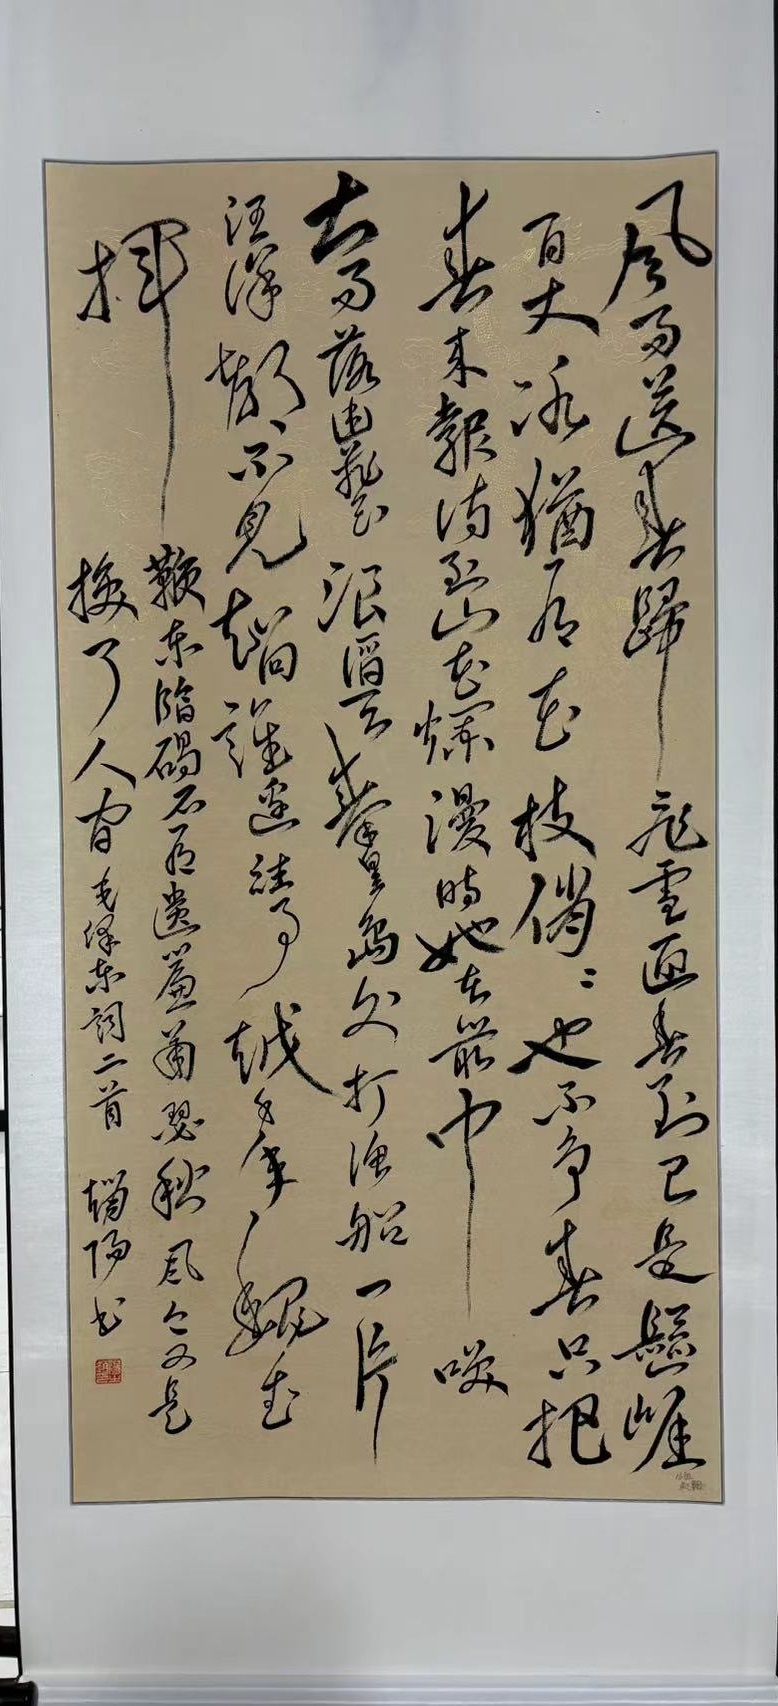 风雨送春歸飛雪迎春到已是懸崖
百丈冰猶有花枝俏〻也不争春只把
春来報待到山花爛漫時她在叢中笑
大雨落幽燕白浪滔天秦皇島外打漁船一片
汪洋都不見知向誰邊往事越千年魏武
揮鞭东臨碣石有遺篇蕭瑟秋風今又是
换了人间毛泽东詞二首